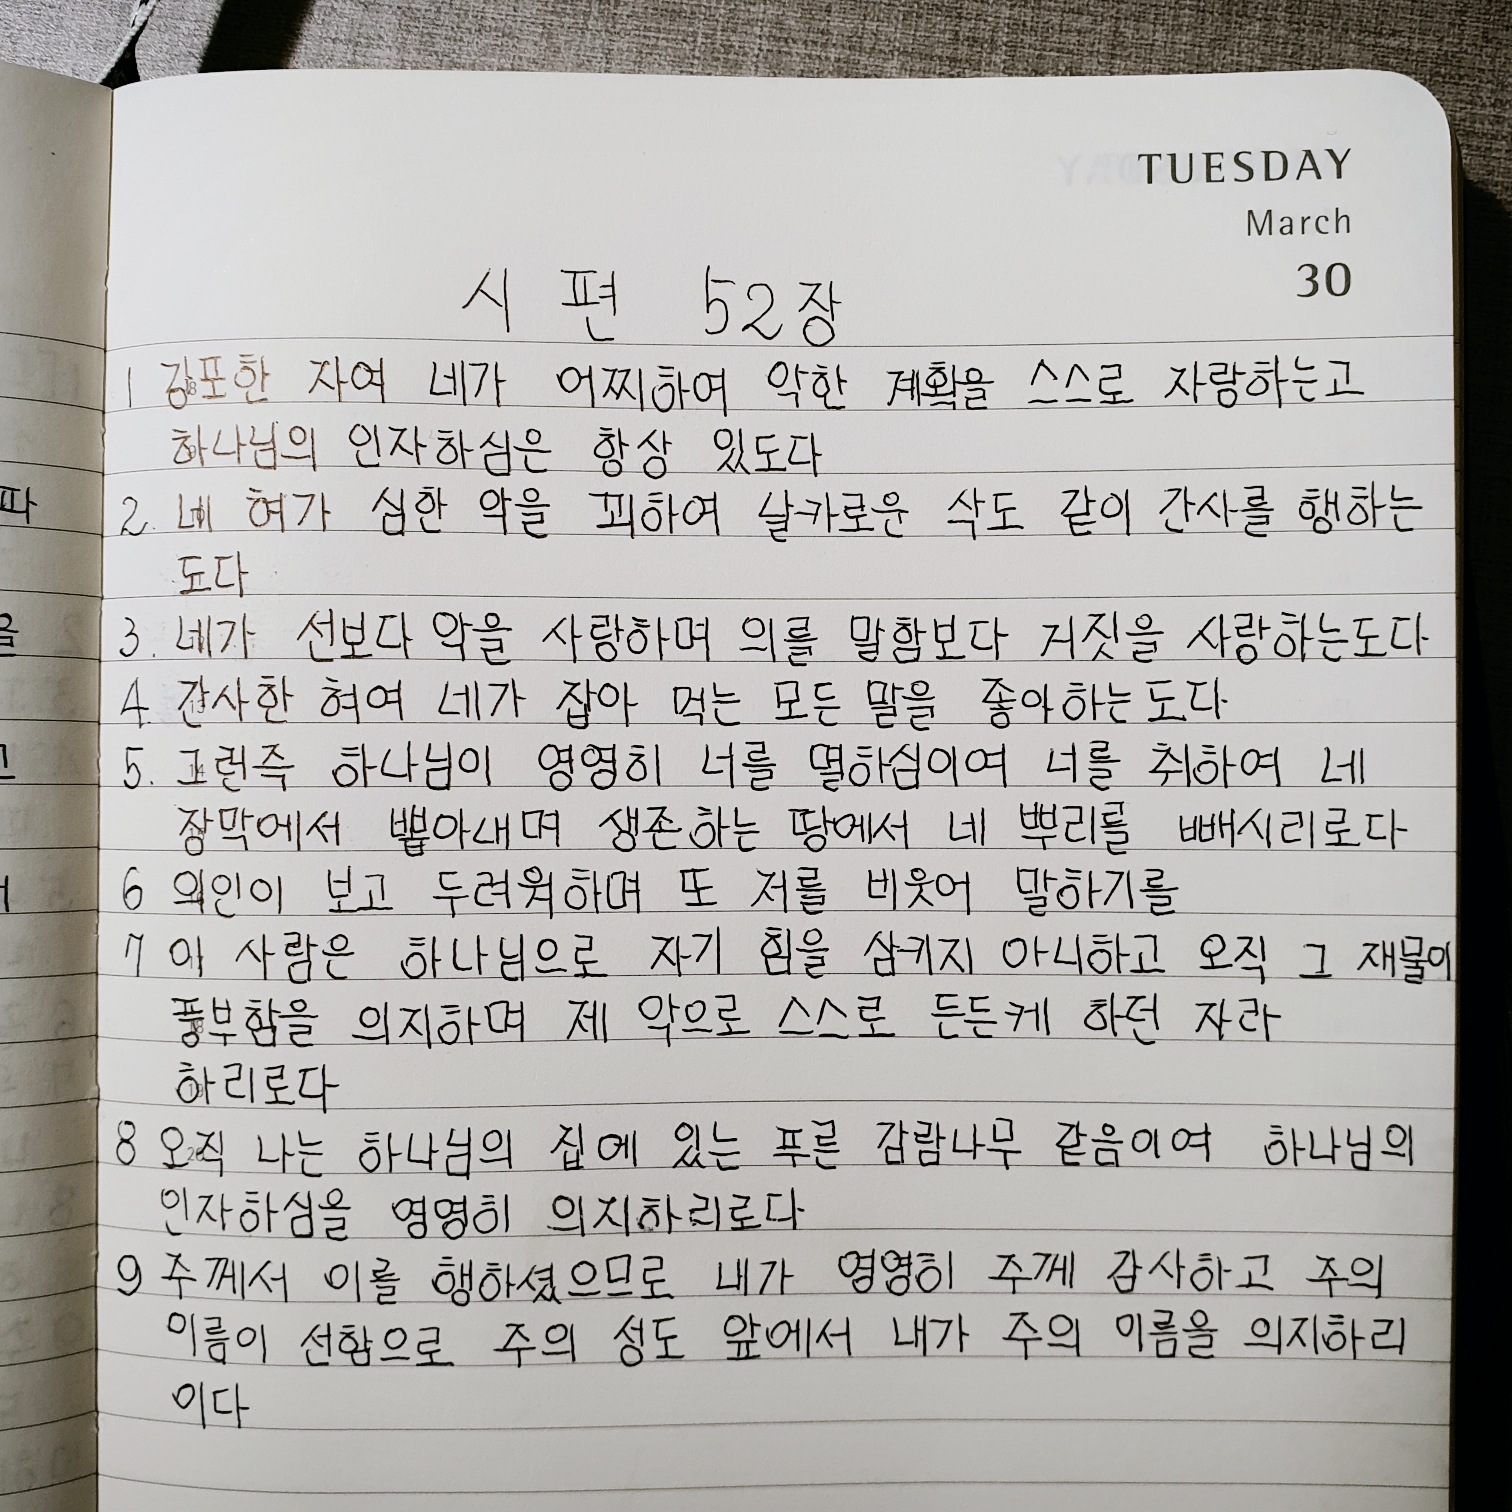 TUESDAY
March
30
시 편 52장
1 강포한 자여 네가 어찌하여 악한 계획을 스스로 자랑하는고
하나님의 인자하심은 항상 있도다
2. 네 혀가 심한 악을 꾀하여 날카로운 삭도 같이 간사를 행하는
도다
3. 네가 선보다 악을 사랑하며 의를 말함보다 거짓을 사랑하는도다
4. 간사한 혀여 네가 잡아 먹는 모든 말을 좋아하는도다
5. 그런즉 하나님이 영영히 너를 멸하심이여 너를 취하여 네
장막에서 뽑아내며 생존하는 땅에서 네 뿌리를 빼시리로다
6 의인이 보고 두려워하며 또 저를 비웃어 말하기를
7 이 사람은 하나님으로 자기 힘을 삼키지 아니하고 오직 그 재물이
풍부함을 의지하며 제 악으로 스스로 든든케 하던 자라
하리로다
8 오직 나는 하나님의 집에 있는 푸른 감람나무 같음이여 하나님의
인자하심을 영영히 의지하리로다
9 주께서 이를 행하셨으므로 내가 영영히 주께 감사하고 주의
이름이 선함으로 주의 성도 앞에서 내가 주의 이름을 의지하리
이다